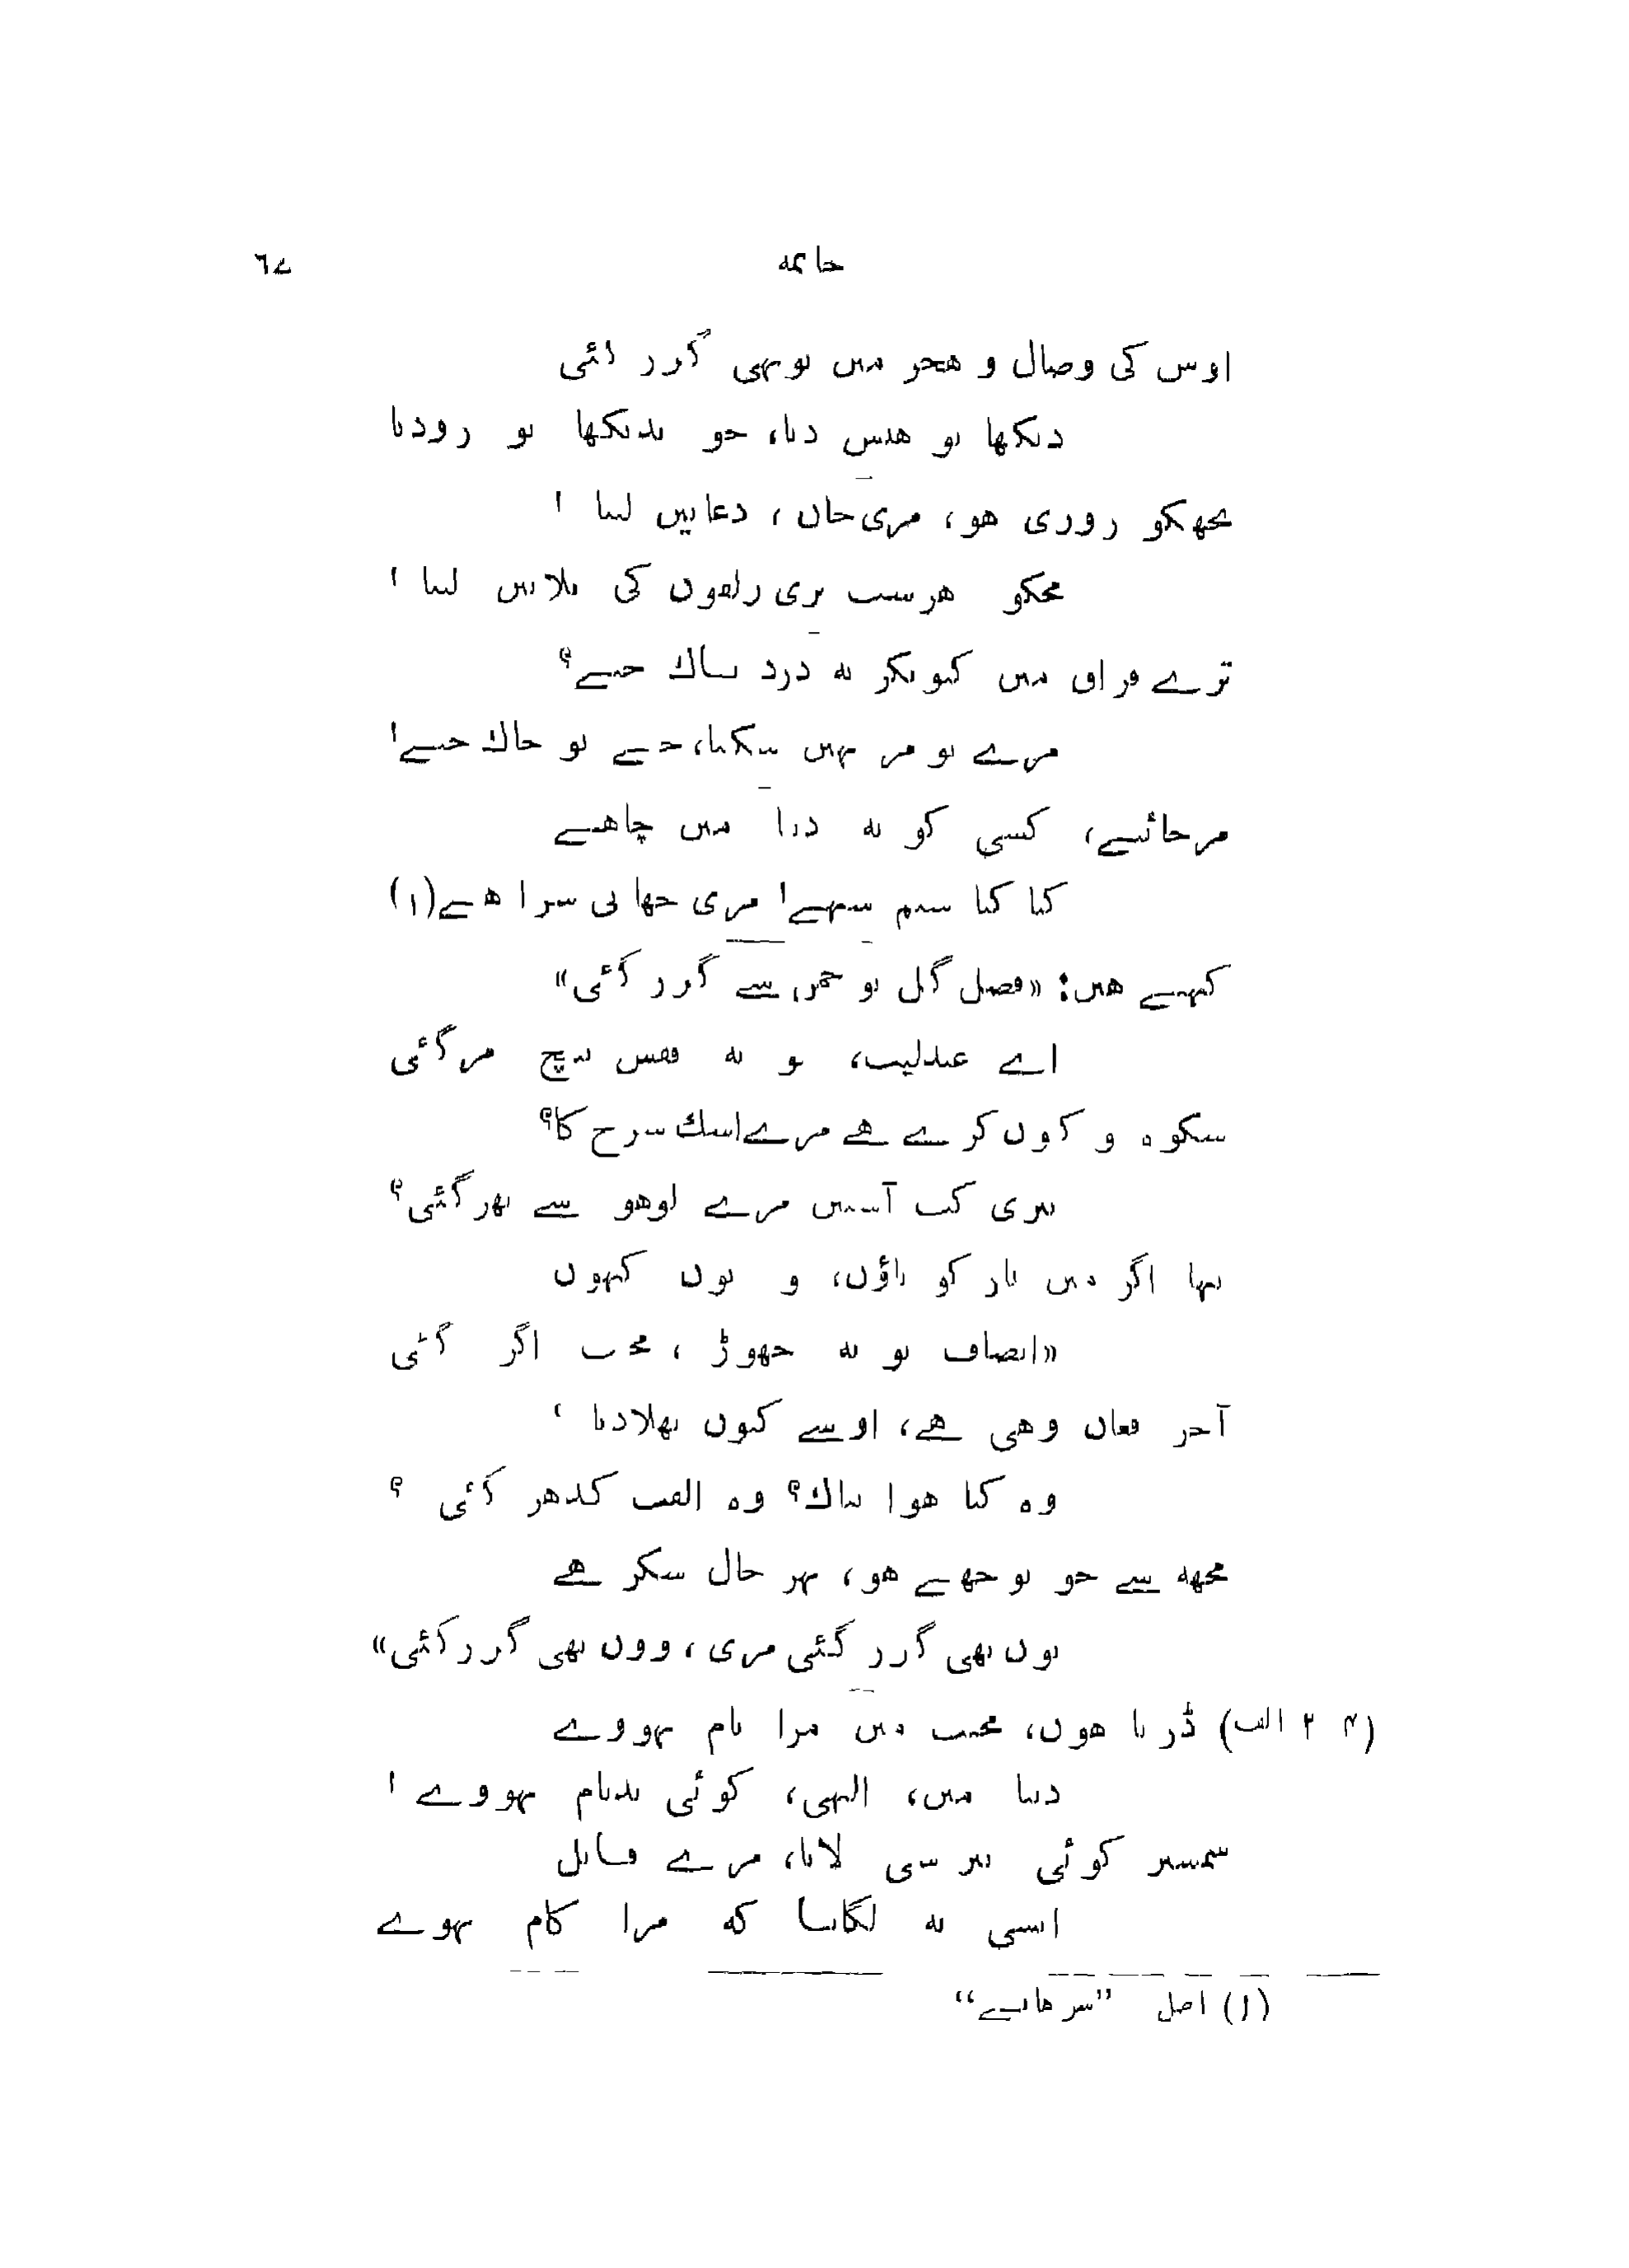 خاتمه ٦٧
اوس کی وصال و هجر میں یونہی گزر گئی
دیکھا تو هنس دیا، جو ندیکھا تو رودیا
تجھکو روزی هو، مری جان، دعایں لینا !
مجکو هرشب تری زلفوں کی بلائیں لینا !
ترے فراق میں کیونکر یه درد ناك جیے؟
مرے تو مر نہیں سکتا، جیے تو خاك جیے!
مرجائیے، کسی کو نه دنیا میں چاهیے
کیا کیا ستم سہے! مری چھاتی سراهیے(۱)
کہتے هیں: «فصل گل تو چمن سے گزر گئی»
اے عندلیب، تو نه قفس بیچ مرگئی
شکوه و کیوں کرے هے مرے اشك سرخ کا؟
تیری کب آستیں مرے لوهو سے بھرگئی؟
تنہا اگر میں یار کو پاؤں، و یوں کہوں
«انصاف تو نه چھوڑ ، محبت اگر گئی
آخر فغاں وهی هے، اوسے کیوں بھلادیا '
وه کیا هوا تپاك؟ وه الفت کدهر گئی ؟
مجھه سے جو پوچھے هو، بہر حال شکر هے
یوں بھی گزر گئی مری، ووں بھی گزرگئی»
(۲۴ الف) ڈرتا هوں، محبت میں مرا نام نہووے
دنیا میں، الہی، کوئی بدنام نہووے !
شمشیر کوئی تیز سی لانا، مرے قاتل
ایسی نه لگانا که مرا کام نہوے
(۱) اصل ”سرهانیے“